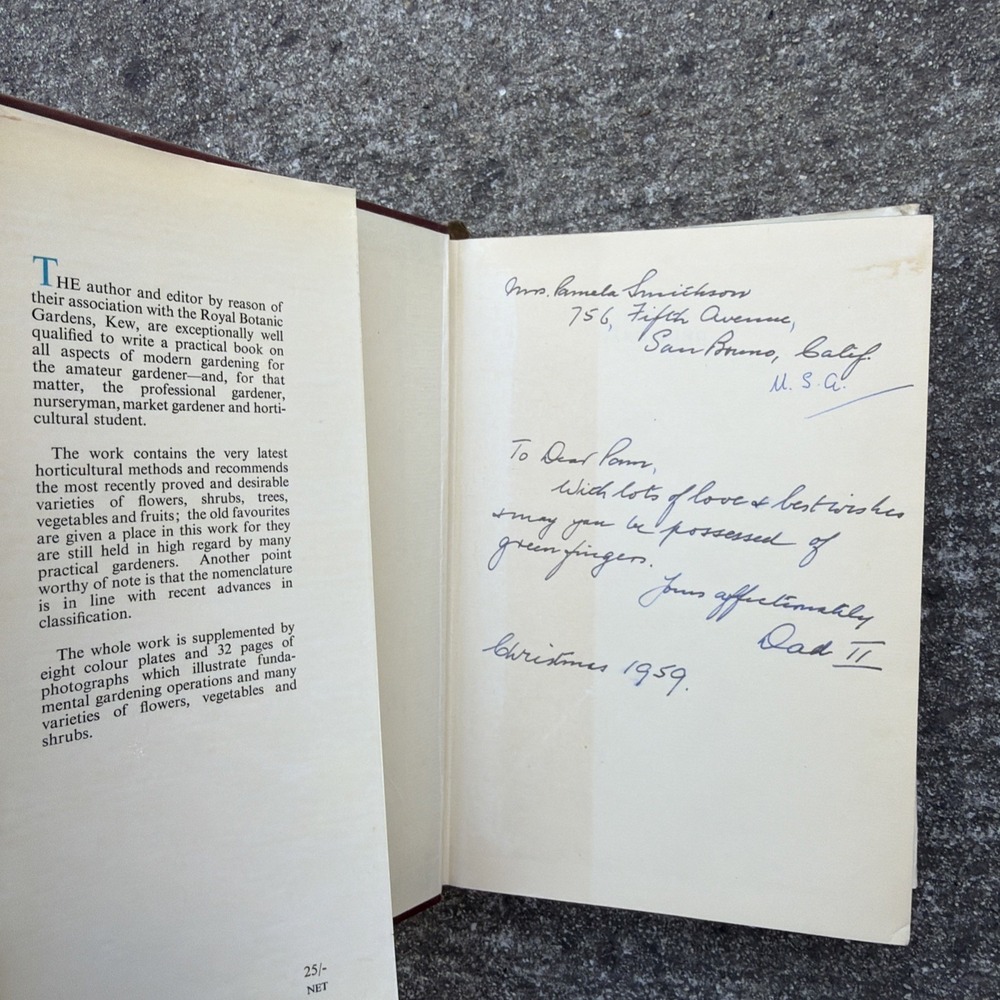 THE author and editor by reason of
their association with the Royal Botanic
Gardens, Kew, are exceptionally well
qualified to write a practical book on
all aspects of modern gardening for
the amateur gardener—and, for that
matter, the professional gardener,
nurseryman, market gardener and horti-
cultural student.
The work contains the very latest
horticultural methods and recommends
the most recently proved and desirable
varieties of flowers, shrubs, trees,
vegetables and fruits; the old favourites
are given a place in this work for they
are still held in high regard by many
practical gardeners. Another point
worthy of note is that the nomenclature
is in line with recent advances in
classification.
The whole work is supplemented by
eight colour plates and 32 pages of
photographs which illustrate funda-
mental gardening operations and many
varieties of flowers, vegetables and
shrubs.
25/-
NET
Mrs. Pamela Smithson
756, Fifth Avenue,
San Bruno, Calif.
U. S. A.
To Dear Pam,
With lots of love & best wishes
& may you be possessed of
green fingers.
Yours affectionately
Dad II
Christmas 1959.